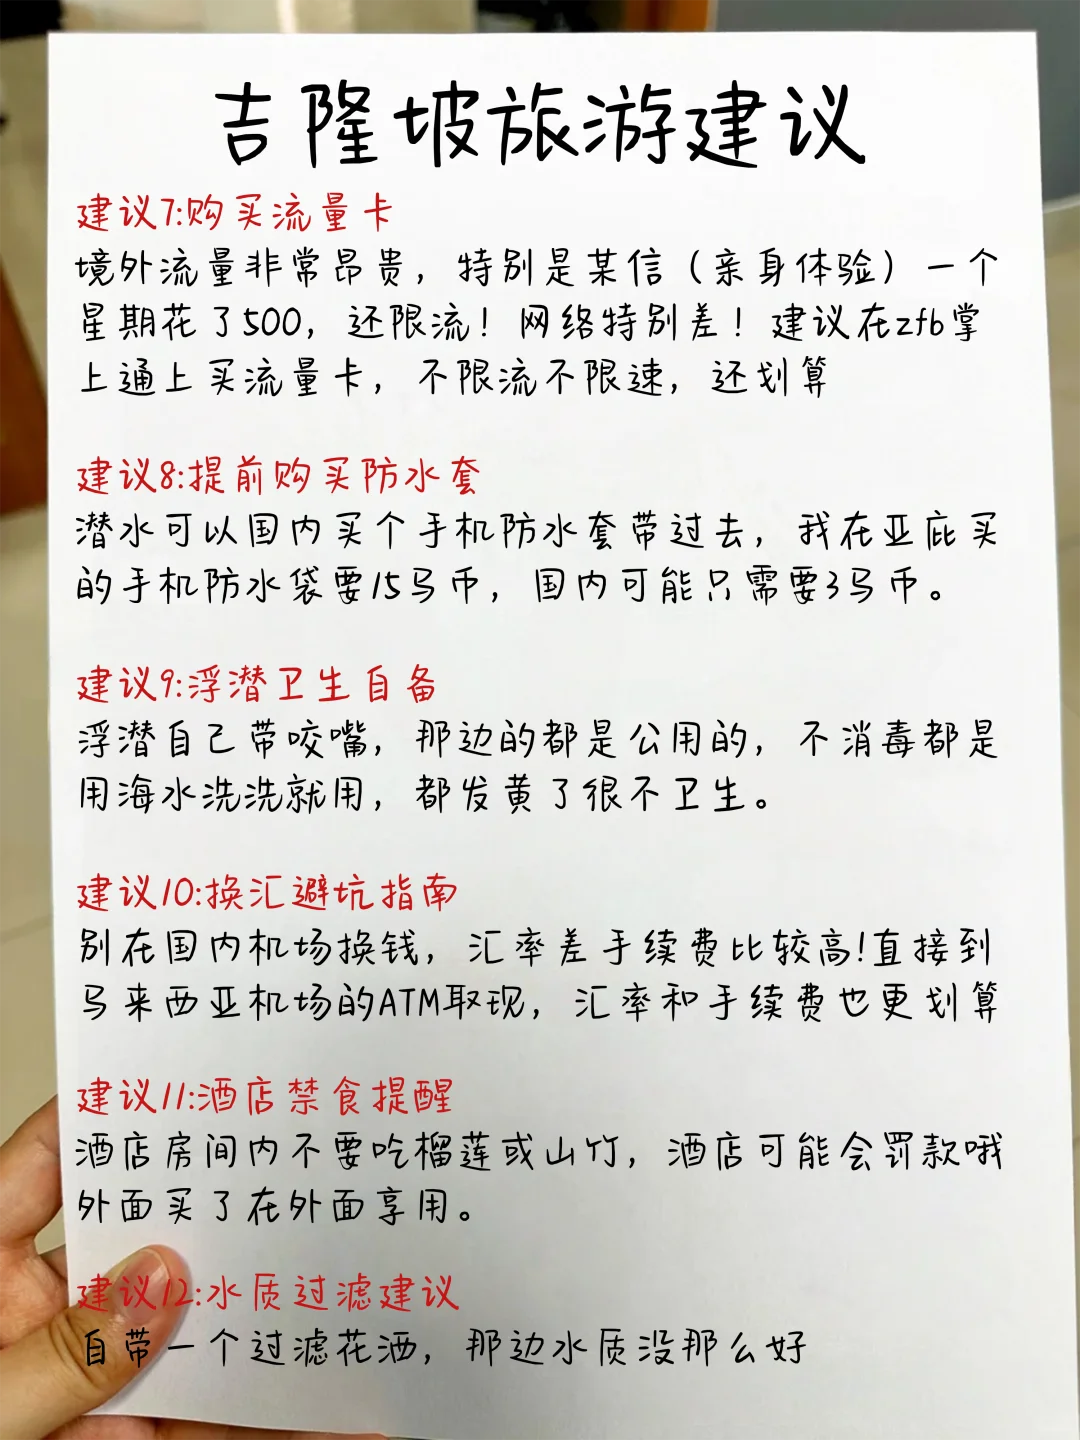 吉隆坡旅游建议
建议7:购买流量卡
境外流量非常昂贵，特别是某信（亲身体验）一个
星期花了500，还限流！网络特别差！建议在zfb掌
上通上买流量卡，不限流不限速，还划算
建议8:提前购买防水套
潜水可以国内买个手机防水套带过去，我在亚庇买
的手机防水袋要15马币，国内可能只需要3马币。
建议9:浮潜卫生自备
浮潜自己带咬嘴，那边的都是公用的，不消毒都是
用海水洗洗就用，都发黄了很不卫生。
建议10:换汇避坑指南
别在国内机场换钱，汇率差手续费比较高!直接到
马来西亚机场的ATM取现，汇率和手续费也更划算
建议11:酒店禁食提醒
酒店房间内不要吃榴莲或山竹，酒店可能会罚款哦
外面买了在外面享用。
建议12:水质过滤建议
自带一个过滤花洒，那边水质没那么好